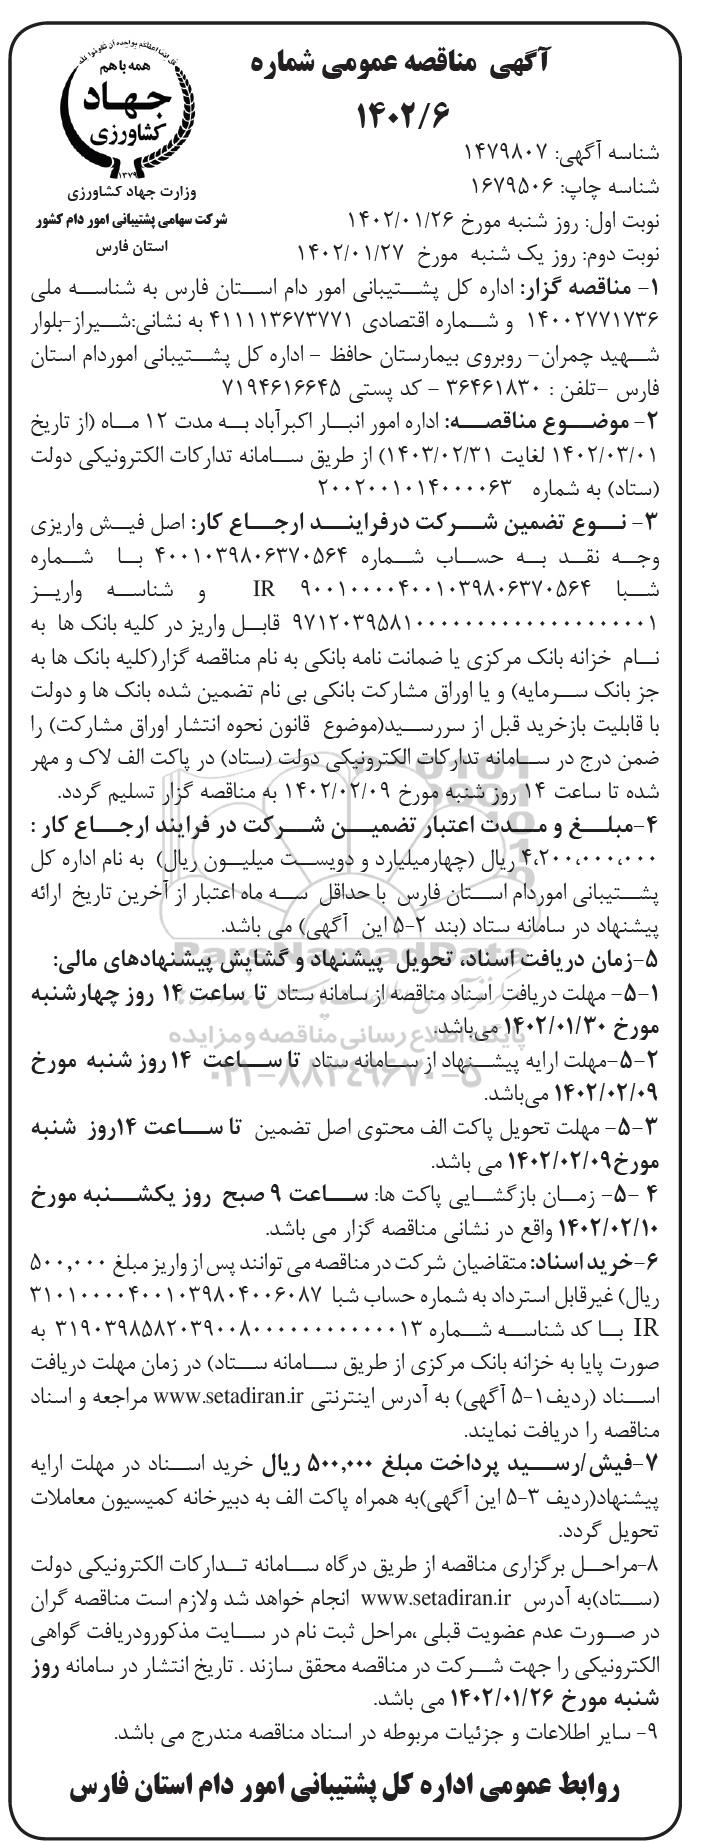 قل انما اعظکم بواحده ان تقوموا لله
همه با هم
جهاد
کشاورزی
۱۳۷۹
وزارت جهاد کشاورزی
شرکت سهامی پشتیبانی امور دام کشور
استان فارس
آگهی مناقصه عمومی شماره
۱۴۰۲/۶
شناسه آگهی: ۱۴۷۹۸۰۷
شناسه چاپ: ۱۶۷۹۵۰۶
نوبت اول: روز شنبه مورخ ۱۴۰۲/۰۱/۲۶
نوبت دوم: روز یک شنبه مورخ ۱۴۰۲/۰۱/۲۷
۱- مناقصه گزار: اداره کل پشتیبانی امور دام استان فارس به شناسه ملی
۱۴۰۰۲۷۷۱۷۳۶ و شماره اقتصادی ۴۱۱۱۱۳۶۷۳۷۷۱ به نشانی:شیراز-بلوار
شهید چمران- روبروی بیمارستان حافظ - اداره کل پشتیبانی اموردام استان
فارس -تلفن : ۳۶۴۶۱۸۳۰ - کد پستی ۷۱۹۴۶۱۶۶۴۵
۲- موضوع مناقصه: اداره امور انبار اکبرآباد به مدت ۱۲ ماه (از تاریخ
۱۴۰۲/۰۳/۰۱ لغایت ۱۴۰۳/۰۲/۳۱) از طریق سامانه تدارکات الکترونیکی دولت
(ستاد) به شماره ۲۰۰۲۰۰۱۰۱۴۰۰۰۰۶۳
۳- نوع تضمین شرکت درفرایند ارجاع کار: اصل فیش واریزی
وجه نقد به حساب شماره ۴۰۰۱۰۳۹۸۰۶۳۷۰۵۶۴ با شماره
شبا IR ۹۰۰۱۰۰۰۰۴۰۰۱۰۳۹۸۰۶۳۷۰۵۶۴ و شناسه واریز
۹۷۱۲۰۳۹۵۸۱۰۰۰۰۰۰۰۰۰۰۰۰۰۰۰۰۰۰۰۱ قابل واریز در کلیه بانک ها به
نام خزانه بانک مرکزی یا ضمانت نامه بانکی به نام مناقصه گزار(کلیه بانک ها به
جز بانک سرمایه) و یا اوراق مشارکت بانکی بی نام تضمین شده بانک ها و دولت
با قابلیت بازخرید قبل از سررسید(موضوع قانون نحوه انتشار اوراق مشارکت) را
ضمن درج در سامانه تدارکات الکترونیکی دولت (ستاد) در پاکت الف لاک و مهر
شده تا ساعت ۱۴ روز شنبه مورخ ۱۴۰۲/۰۲/۰۹ به مناقصه گزار تسلیم گردد.
۴-مبلغ و مدت اعتبار تضمین شرکت در فرایند ارجاع کار :
۴،۲۰۰،۰۰۰،۰۰۰ ریال (چهارمیلیارد و دویست میلیون ریال) به نام اداره کل
پشتیبانی اموردام استان فارس با حداقل سه ماه اعتبار از آخرین تاریخ ارائه
پیشنهاد در سامانه ستاد (بند ۲-۵ این آگهی) می باشد.
۵-زمان دریافت اسناد، تحویل پیشنهاد و گشایش پیشنهادهای مالی:
۵-۱- مهلت دریافت اسناد مناقصه از سامانه ستاد تا ساعت ۱۴ روز چهارشنبه
مورخ ۱۴۰۲/۰۱/۳۰ می‌باشد.
۵-۲-مهلت ارایه پیشنهاد از سامانه ستاد تا ساعت ۱۴ روز شنبه مورخ
۱۴۰۲/۰۲/۰۹ می‌باشد.
۵-۳- مهلت تحویل پاکت الف محتوی اصل تضمین تا ساعت ۱۴روز شنبه
مورخ۱۴۰۲/۰۲/۰۹ می باشد.
۴ -۵- زمان بازگشایی پاکت ها: ساعت ۹ صبح روز یکشنبه مورخ
۱۴۰۲/۰۲/۱۰ واقع در نشانی مناقصه گزار می باشد.
۶-خرید اسناد: متقاضیان شرکت در مناقصه می توانند پس از واریز مبلغ ۵۰۰,۰۰۰
ریال) غیرقابل استرداد به شماره حساب شبا ۳۱۰۱۰۰۰۰۴۰۰۱۰۳۹۸۰۴۰۰۶۰۸۷
IR با کد شناسه شماره ۳۱۹۰۳۹۸۵۸۲۰۳۹۰۰۸۰۰۰۰۰۰۰۰۰۰۰۰۱۳ به
صورت پایا به خزانه بانک مرکزی از طریق سامانه ستاد) در زمان مهلت دریافت
اسناد (ردیف۱-۵ آگهی) به آدرس اینترنتی www.setadiran.ir مراجعه و اسناد
مناقصه را دریافت نمایند.
۷-فیش/رسید پرداخت مبلغ ۵۰۰,۰۰۰ ریال خرید اسناد در مهلت ارایه
پیشنهاد(ردیف ۳-۵ این آگهی)به همراه پاکت الف به دبیرخانه کمیسیون معاملات
تحویل گردد.
۸-مراحل برگزاری مناقصه از طریق درگاه سامانه تدارکات الکترونیکی دولت
(ستاد)به آدرس www.setadiran.ir انجام خواهد شد ولازم است مناقصه گران
در صورت عدم عضویت قبلی ،مراحل ثبت نام در سایت مذکورودریافت گواهی
الکترونیکی را جهت شرکت در مناقصه محقق سازند . تاریخ انتشار در سامانه روز
شنبه مورخ ۱۴۰۲/۰۱/۲۶ می باشد.
۹- سایر اطلاعات و جزئیات مربوطه در اسناد مناقصه مندرج می باشد.
روابط عمومی اداره کل پشتیبانی امور دام استان فارس
ParsNamadData
پایگاه اطلاع رسانی مناقصه و مزایده
۰۲۱-۸۸۳۴۹۶۷۰-۵